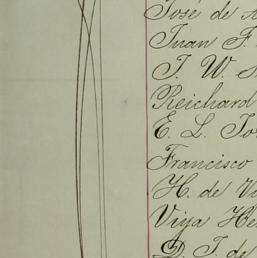 José de
Juan F.
J. W.
Reichard
E. L.
Francisco
H. de
Viya
D. J. de